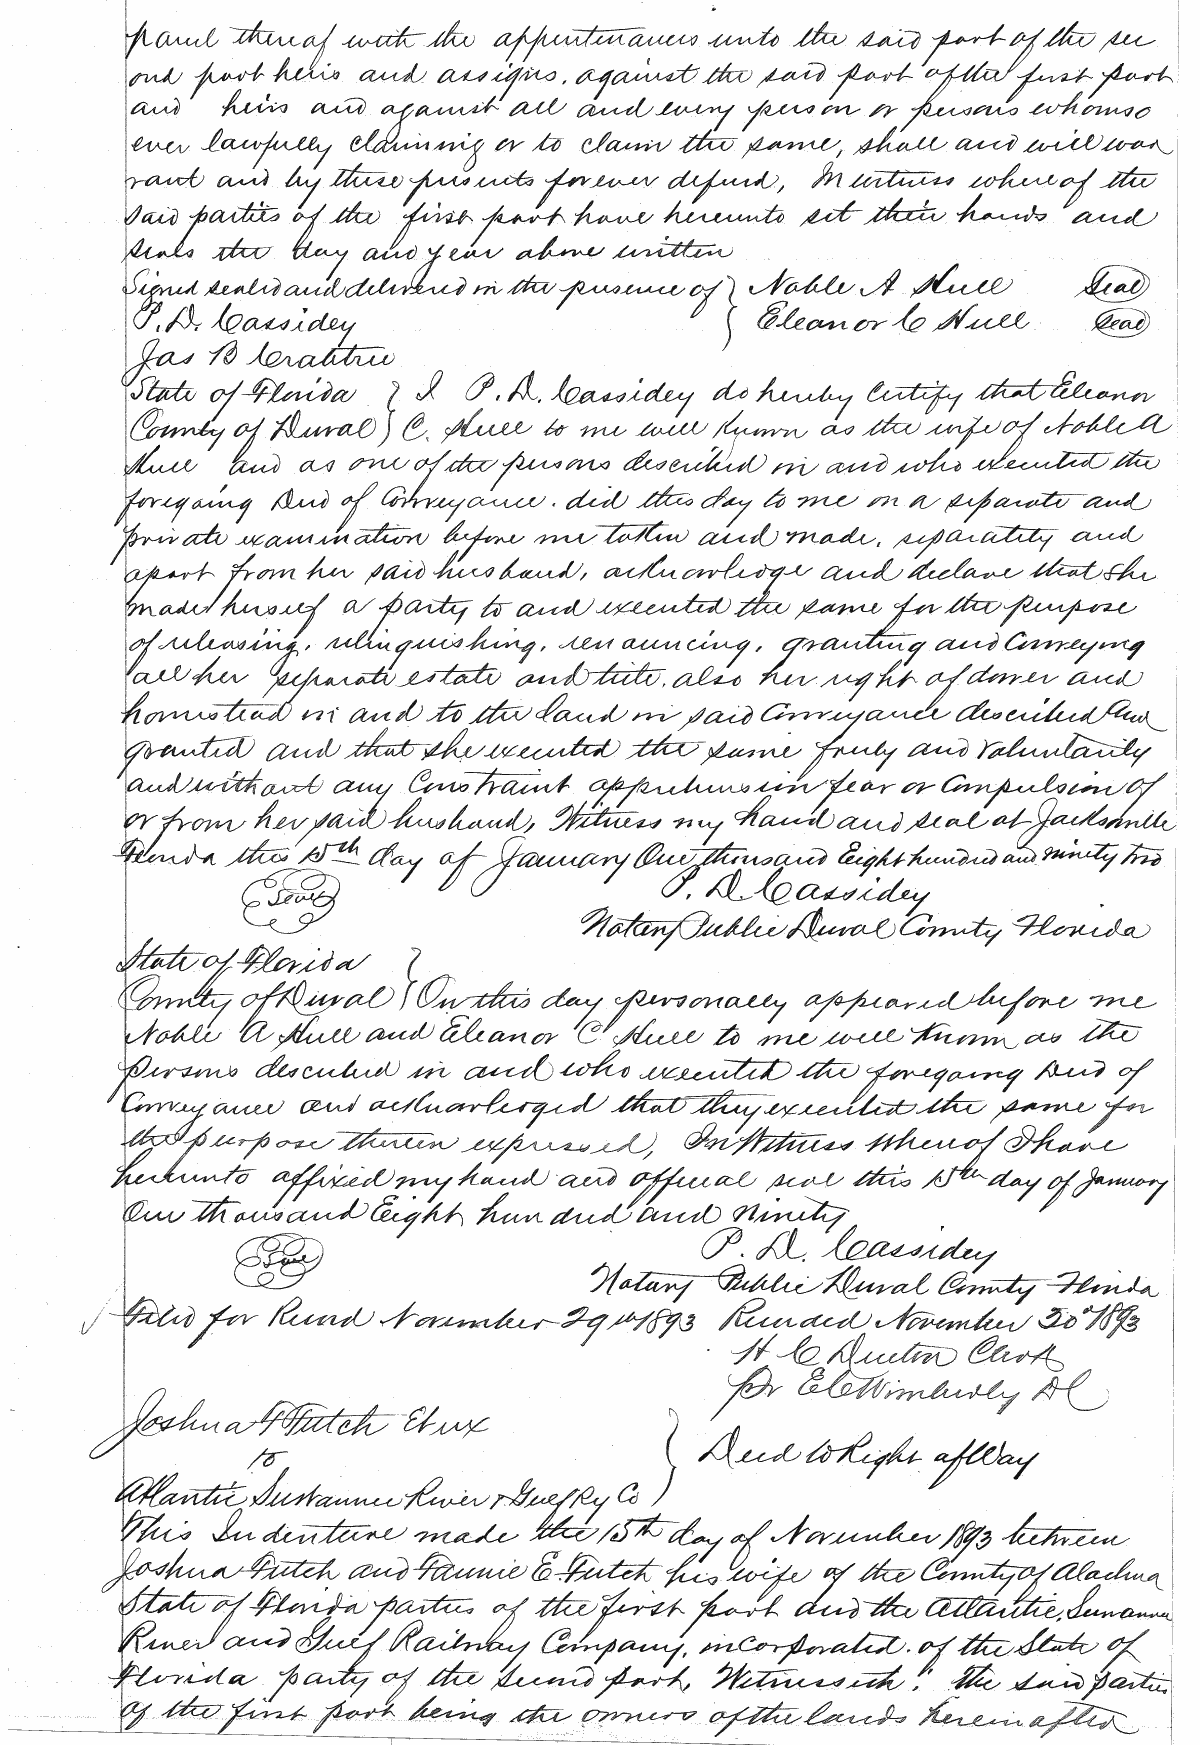 parcel thereof with the appurtenances unto the said part of the sec
ond part heris and assigns. against the said part of the first part
and heirs and against all and every person or persons whomso
ever lawfully claiming or to claim the same, shall and will war
rant and by these presents forever defend, In witness whereof the
said parties of the first part have hereunto set their hands and
seals the day and year above written
Signed sealed and delivered in the presence of } Noble A Hull Seal
P. D. Cassidey { Eleanor C Hull Seal
Jas B Crabtree
State of Florida } I P. D. Cassidey do hereby Certify that Eleanor
County of Duval } C. Hull to me well known as the wife of Noble A
Hull and as one of the persons described in and who executed the
foregoing Deed of Conveyance. did this day to me on a separate and
private examination before me taken and made, separately and
apart from her said husband, acknowledge and declare that she
made herself a party to and executed the same for the purpose
of releasing, relinquishing, renouncing, granting and Conveying
all her separate estate and title, also her right of dower and
homestead in and to the land in said Conveyance described and
granted and that she executed the same freely and voluntarily
and without any Constraint apprehension fear or Compulsion of
or from her said husband, Witness my hand and seal at Jacksonville
Florida this 15th day of January One thousand Eight hundred and ninety two
Seal P. D. Cassidey
Notary Public Duval County Florida
State of Florida }
County of Duval } On this day personally appeared before me
Noble A Hull and Eleanor C Hull to me well known as the
Persons described in and who executed the foregoing Deed of
Conveyance and acknowledged that they executed the same for
the purpose therein expressed, In Witness Whereof I have
hereunto affixed my hand and official seal this 15th day of January
One thousand Eight hundred and ninety
Seal P. D. Cassidey
Notary Public Duval County Florida
Filed for Record November 29th 1893 Recorded November 30th 1893
H C Denton Clerk
Pr E C Wimberly DC
Joshua F Futch Et ux
to } Deed to Right of Way
Atlantic Suwannee River & Gulf Ry Co
This Indenture made the 15th day of November 1893 between
Joshua Futch and Fannie E Futch his wife of the County of Alachua
State of Florida parties of the first part and the Atlantic, Suwannee
River and Gulf Railway Company, incorporated. of the State of
Florida party of the second part, Witnesseth: The said parties
of the first part being the owners of the lands hereinafter